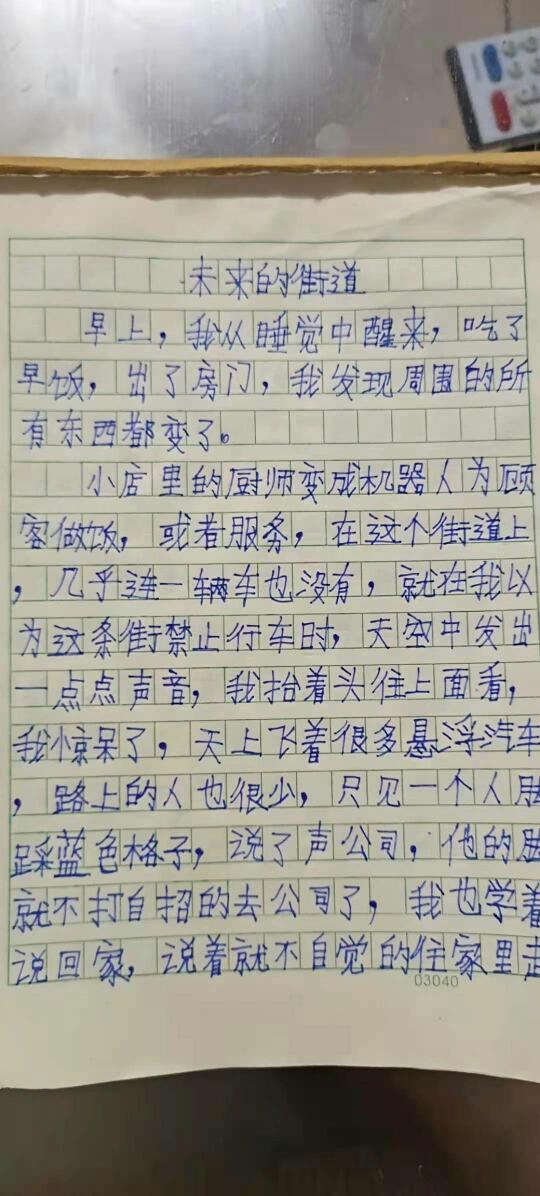 未来的街道
早上，我从睡觉中醒来，吃了
早饭，出了房门，我发现周围的所
有东西都变了。
小店里的厨师变成机器人为顾
客做饭，或者服务，在这个街道上
，几乎连一辆车也没有，就在我以
为这条街禁止行车时，天空中发出
一点点声音，我抬着头往上面看，
我惊呆了，天上飞着很多悬浮汽车
，路上的人也很少，只见一个人脚
踩蓝色格子，说了声公司，他的脚
就不打自招的去公司了，我也学着
说回家，说着就不自觉的往家里走
03040